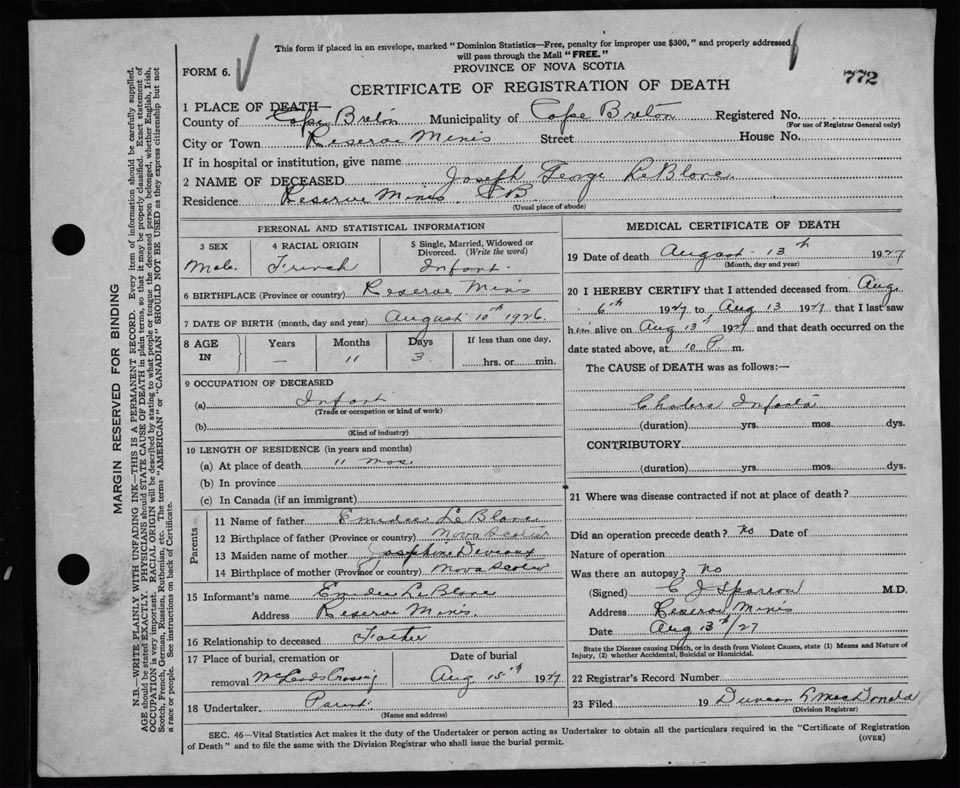 This form if placed in an envelope, marked "Dominion Statistics—Free, penalty for improper use $300," and properly addressed
will pass through the Mail "FREE."
FORM 6.
PROVINCE OF NOVA SCOTIA
772
CERTIFICATE OF REGISTRATION OF DEATH
1 PLACE OF DEATH—
County of Cape Breton Municipality of Cape Breton Registered No.
(For use of Registrar General only)
City or Town Reserve Mines Street House No.
If in hospital or institution, give name
2 NAME OF DECEASED Joseph George LeBlanc
Residence Reserve Mines C B.
(Usual place of abode)
PERSONAL AND STATISTICAL INFORMATION
3 SEX 4 RACIAL ORIGIN 5 Single, Married, Widowed or Divorced. (Write the word)
Male. French Infant.
6 BIRTHPLACE (Province or country) Reserve Mines
7 DATE OF BIRTH (month, day and year) August 10th 1926.
8 AGE IN Years Months Days If less than one day,
— 11 3 hrs. or min.
9 OCCUPATION OF DECEASED
(a) Infant
(Trade or occupation or kind of work)
(b)
(Kind of industry)
10 LENGTH OF RESIDENCE (in years and months)
(a) At place of death 11 mos.
(b) In province
(c) In Canada (if an immigrant)
Parents
11 Name of father LeBlanc
12 Birthplace of father (Province or country) Nova Scotia
13 Maiden name of mother Josephine
14 Birthplace of mother (Province or country) Nova Scotia
15 Informant's name LeBlanc
Address Reserve Mines.
16 Relationship to deceased Father
17 Place of burial, cremation or Date of burial
removal McLeods Crossing Aug 15th 1927
18 Undertaker Parent.
(Name and address)
MEDICAL CERTIFICATE OF DEATH
19 Date of death August 13th 1927
(Month, day and year)
20 I HEREBY CERTIFY that I attended deceased from Aug.
6th 1927 to Aug 13 1927 that I last saw
him alive on Aug 13th 1927 and that death occurred on the
date stated above, at 10 P m.
The CAUSE of DEATH was as follows:—
Cholera Infanta
(duration) yrs. mos. dys.
CONTRIBUTORY
(duration) yrs. mos. dys.
21 Where was disease contracted if not at place of death?
Did an operation precede death? No Date of
Nature of operation
Was there an autopsy? No
(Signed) C J Sparrow M.D.
Address Reserve Mines
Date Aug 13th/27
State the Disease causing Death, or in death from Violent Causes, state (1) Means and Nature of
Injury, (2) whether Accidental, Suicidal or Homicidal.
22 Registrar's Record Number
23 Filed 19 Duncan MacDonald
(Division Registrar)
SEC. 46—Vital Statistics Act makes it the duty of the Undertaker or person acting as Undertaker to obtain all the particulars required in the "Certificate of Registration
of Death" and to file the same with the Division Registrar who shall issue the burial permit.
(OVER)
MARGIN RESERVED FOR BINDING
N.B.—WRITE PLAINLY WITH UNFADING INK—THIS IS A PERMANENT RECORD. Every item of information should be carefully supplied.
AGE should be stated EXACTLY. PHYSICIANS should STATE CAUSE OF DEATH in plain terms, so that it may be properly classified. Exact statement of
OCCUPATION is very important. RACIAL ORIGIN will be described by stating to what people or tongue the deceased person belonged, whether English, Irish,
Scotch, French, German, Russian, Ruthenian, etc. The terms "AMERICAN" or "CANADIAN" SHOULD NOT BE USED as they express citizenship but not
a race or people. See instructions on back of Certificate.